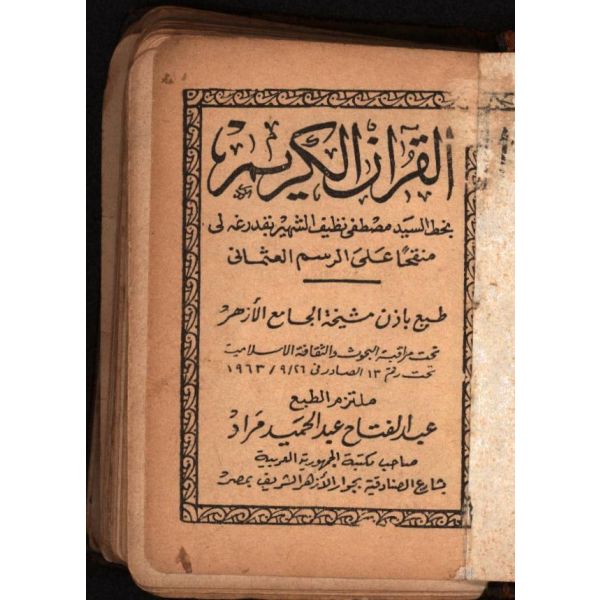 القرآن الكريم
بخط السيد مصطفى نظيف الشهير بقدرغه لى
منقحًا على الرسم العثمانى
طبع بإذن مشيخة الجامع الأزهر
تحت مراقبة البحوث والثقافة الاسلامية
تحت رقم ١٣ الصادر فى ٢٦ / ٩ / ١٩٦٣
ملتزم الطبع
عبد الفتاح عبد الحميد مراد
صاحب مكتبة الجمهورية العربية
بشارع الصنادقية بجوار الأزهر الشريف بمصر